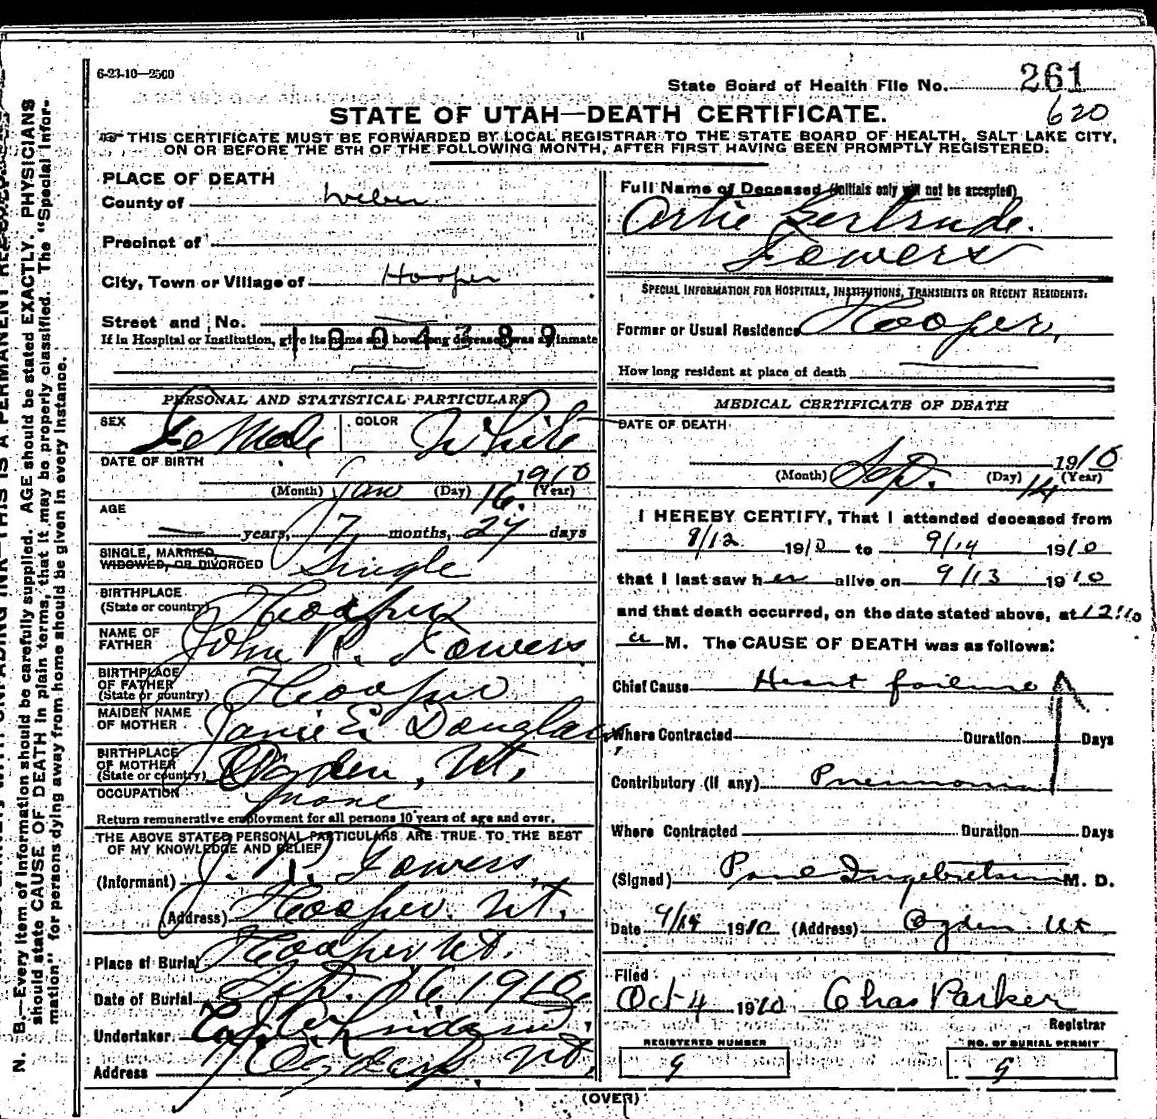 6-23-10—2500
State Board of Health File No. 261
620
STATE OF UTAH—DEATH CERTIFICATE.
THIS CERTIFICATE MUST BE FORWARDED BY LOCAL REGISTRAR TO THE STATE BOARD OF HEALTH, SALT LAKE CITY,
ON OR BEFORE THE 5TH OF THE FOLLOWING MONTH, AFTER FIRST HAVING BEEN PROMPTLY REGISTERED.
PLACE OF DEATH
County of Weber
Precinct of
City, Town or Village of Hooper
Street and No.
1004389
If in Hospital or Institution, give its name and how long deceased was an inmate
PERSONAL AND STATISTICAL PARTICULARS
SEX Female COLOR White
DATE OF BIRTH
1910
(Month) Jan (Day) 16 (Year)
AGE
years, 7 months, 27 days
SINGLE, MARRIED,
WIDOWED, OR DIVORCED Single
BIRTHPLACE
(State or country) Hooper
NAME OF
FATHER John R. Fowers
BIRTHPLACE
OF FATHER
(State or country) Hooper
MAIDEN NAME
OF MOTHER Janie E. Douglas
BIRTHPLACE
OF MOTHER
(State or country) Ogden, Ut.
OCCUPATION none
Return remunerative employment for all persons 10 years of age and over.
THE ABOVE STATED PERSONAL PARTICULARS ARE TRUE TO THE BEST
OF MY KNOWLEDGE AND BELIEF
(Informant) J. R. Fowers
(Address) Hooper. Ut.
Place of Burial Hooper Ut.
Date of Burial Sep. 16 1910
Undertaker
Address Ogden, Ut.
Full Name of Deceased (Initials only will not be accepted)
Artie Gertrude
Fowers
SPECIAL INFORMATION FOR HOSPITALS, INSTITUTIONS, TRANSIENTS OR RECENT RESIDENTS:
Former or Usual Residence Hooper,
How long resident at place of death
MEDICAL CERTIFICATE OF DEATH
DATE OF DEATH
1910
(Month) Sep. (Day) 14 (Year)
I HEREBY CERTIFY, That I attended deceased from
9/12 1910 to 9/14 1910
that I last saw her alive on 9/13 1910
and that death occurred, on the date stated above, at 12:10
a M. The CAUSE OF DEATH was as follows:
Chief Cause Heart failure
Where Contracted Duration Days
Contributory (if any) Pneumonia
Where Contracted Duration Days
(Signed) Paul Ingebretsen M. D.
Date 9/14 1910 (Address) Ogden Ut
Filed
Oct 4 1910 Chas Parker
Registrar
REGISTERED NUMBER
9
NO. OF BURIAL PERMIT
9
(OVER)
N. B.—Every item of information should be carefully supplied. AGE should be stated EXACTLY. PHYSICIANS
should state CAUSE OF DEATH in plain terms, that it may be properly classified. The "Special Infor-
mation" for persons dying away from home should be given in every instance.